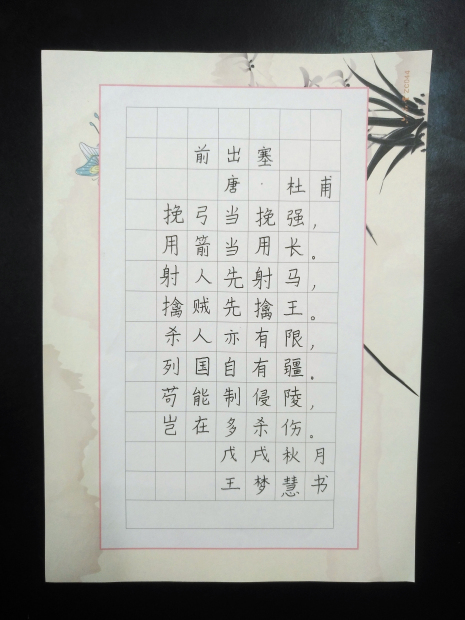 前出塞
唐·杜甫
挽弓当挽强，
用箭当用长。
射人先射马，
擒贼先擒王。
杀人亦有限，
列国自有疆。
苟能制侵陵，
岂在多杀伤。
戊戌秋月
王梦慧书